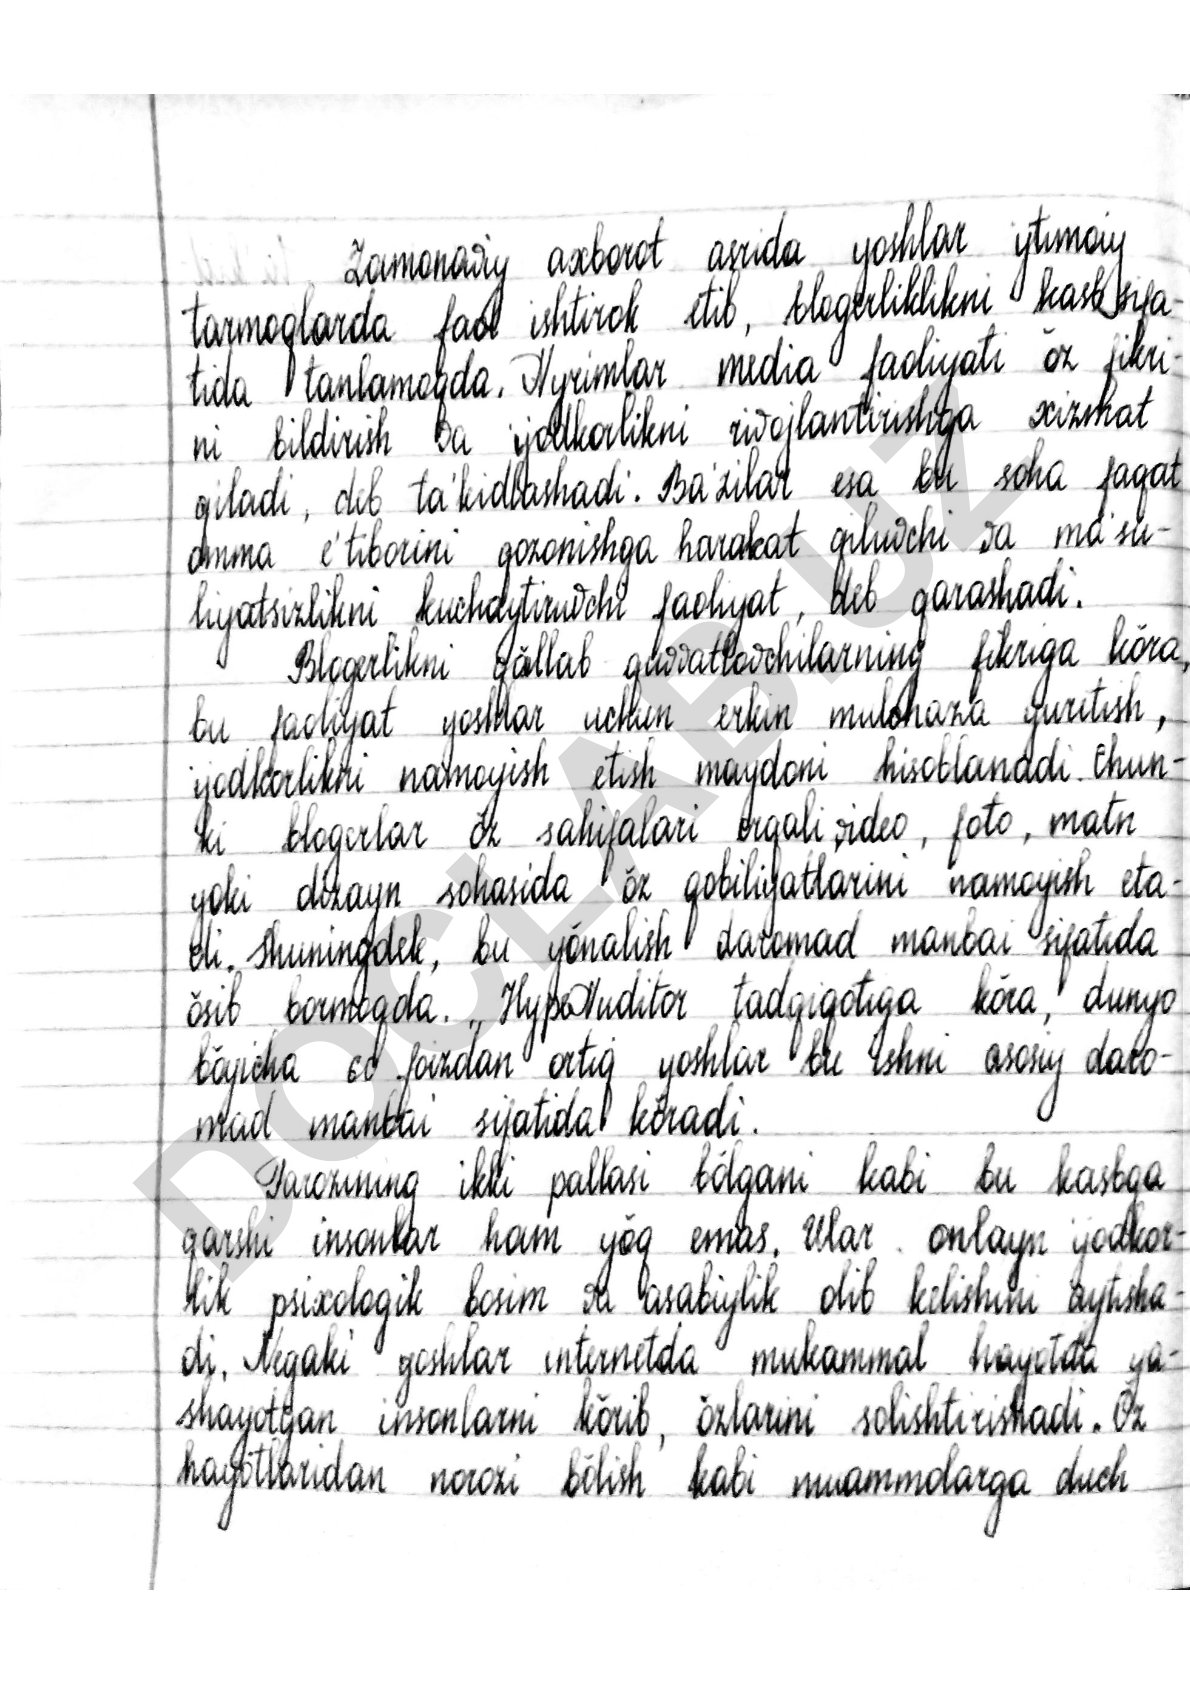 Zamonaviy axborot asrida yoshlar ijtimoiy
tarmoqlarda faol ishtirok etib, blogerliklikni kasb sifa-
tida tanlamoqda. Ayrimlar media faoliyati ŏz fikri-
ni bildirish va ijodkorlikni rivojlantirishga xizmat
qiladi, deb ta'kidlashadi. Ba'zilar esa bu soha faqat
omma e'tiborini qozonishga harakat qiluvchi va ma'su-
liyatsizlikni kuchaytiruvchi faoliyat, deb qarashadi.
Blogerlikni qŏllab quvvatlovchilarning fikriga kŏra,
bu faoliyat yoshlar uchun erkin mulohaza yuritish,
ijodkorlikni namoyish etish maydoni hisoblanadi. Chun-
ki blogerlar ŏz sahifalari orqali video, foto, matn
yoki dizayn sohasida ŏz qobiliyatlarini namoyish eta-
di. Shuningdek, bu yŏnalish daromad manbai sifatida
ŏsib bormoqda. „HypeAuditor tadqiqotiga kŏra, dunyo
bŏyicha 60 foizdan ortiq yoshlar bu ishni asosiy daro-
mad manbai sifatida kŏradi.
Tarozining ikki pallasi bŏlgani kabi bu kasbga
qarshi insonlar ham yŏq emas. Ular onlayn ijodkor-
lik psixologik bosim va asabiylik olib kelishini aytisha-
di. Negaki yoshlar internetda mukammal hayotda ya-
shayotgan insonlarni kŏrib, ŏzlarini solishtirishadi. Ŏz
hayotlaridan norozi bŏlish kabi muammolarga duch
DOCLAB.UZ